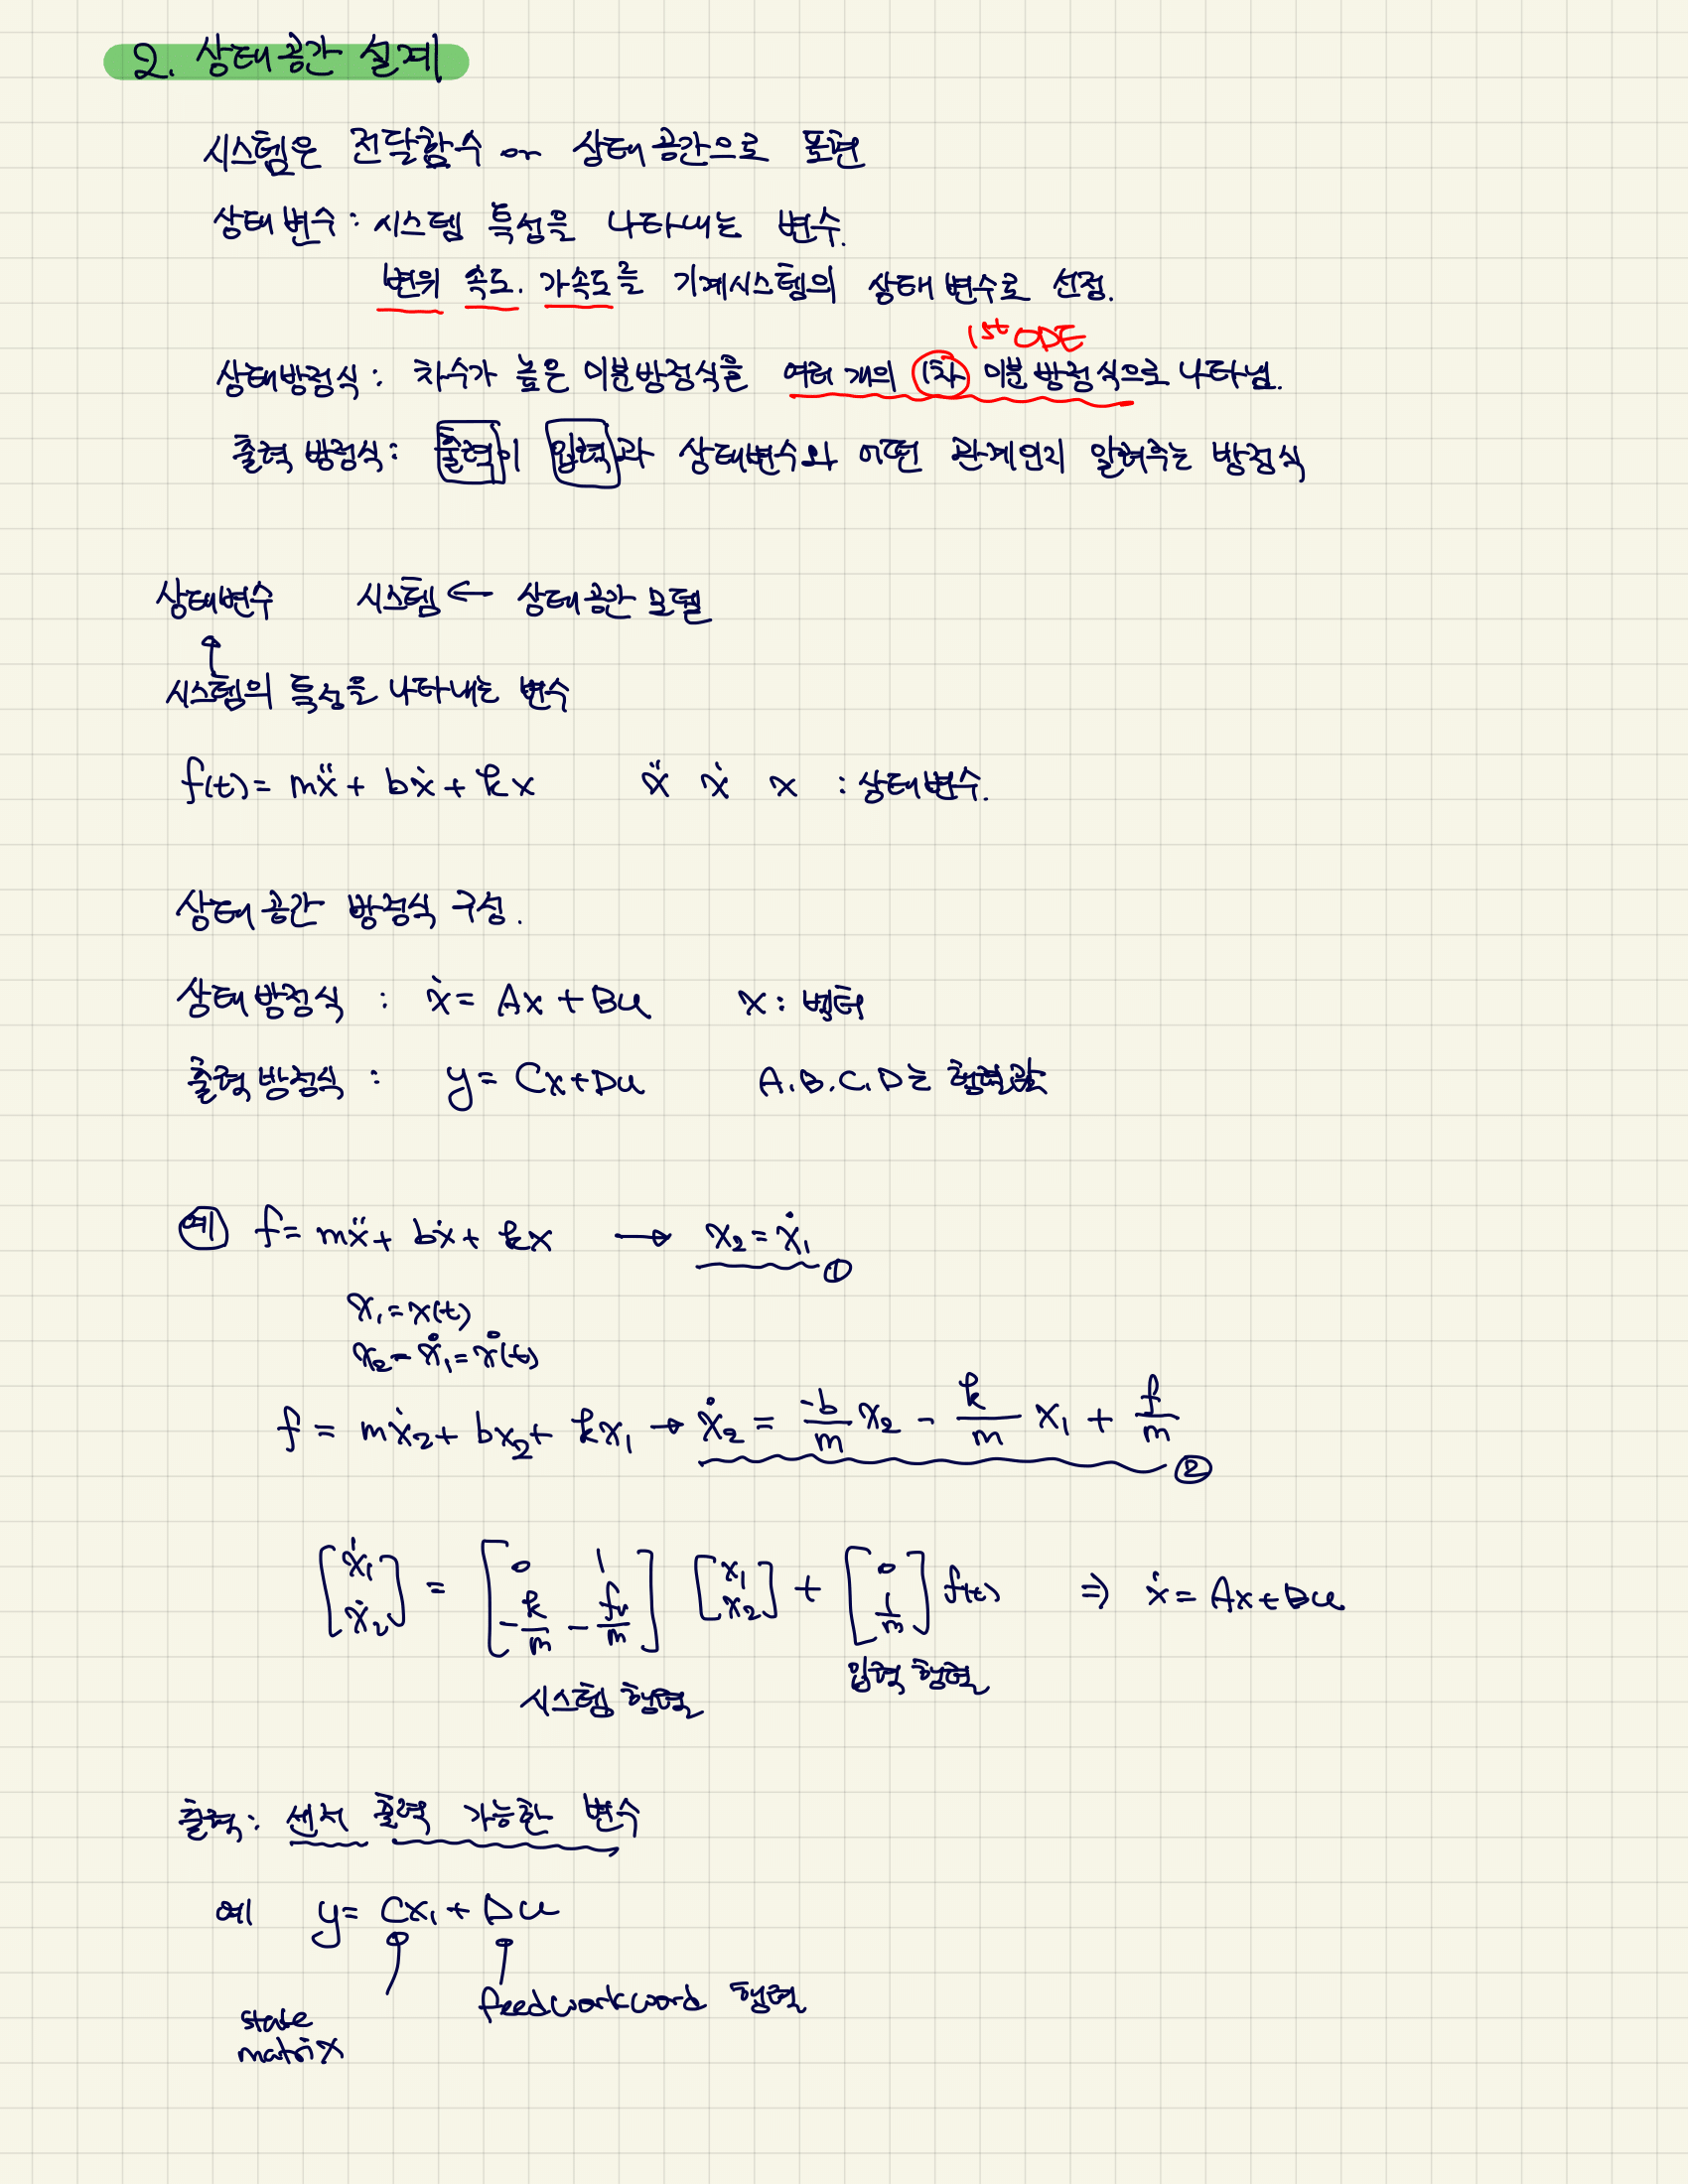 2. 상태공간 설계
시스템은 전달함수 or 상태공간으로 표현
상태변수 : 시스템 특성을 나타내는 변수.
변위 속도. 가속도를 기계시스템의 상태변수로 선정.
1st ODE
상태방정식 : 차수가 높은 미분방정식을 여러 개의 1차 미분방정식으로 나타냄.
출력 방정식 : 출력이 입력과 상태변수와 어떤 관계인지 알려주는 방정식
상태변수 시스템 ← 상태공간 모델
↑
시스템의 특성을 나타내는 변수
f(t) = mẍ + bẋ + kx ẍ ẋ x : 상태변수.
상태공간 방정식 구성.
상태방정식 : ẋ = Ax + Bu x : 벡터
출력방정식 : y = Cx + Du A.B.C.D는 행렬값
예 f = mẍ + bẋ + kx → x₂ = ẋ₁ ①
x₁ = x(t)
x₂ = ẋ₁ = ẋ(t)
f = mẋ₂ + bx₂ + kx₁ → ẋ₂ = -b/m x₂ - k/m x₁ + f/m ②
[ẋ₁ ẋ₂] = [0 1 -k/m -fv/m] [x₁ x₂] + [0 1/m] f(t) ⇒ ẋ = Ax + Bu
시스템 행렬 입력 행렬
출력 : 센서 출력 가능한 변수
예 y = Cx₁ + Du
state matrix feedworkword 행렬